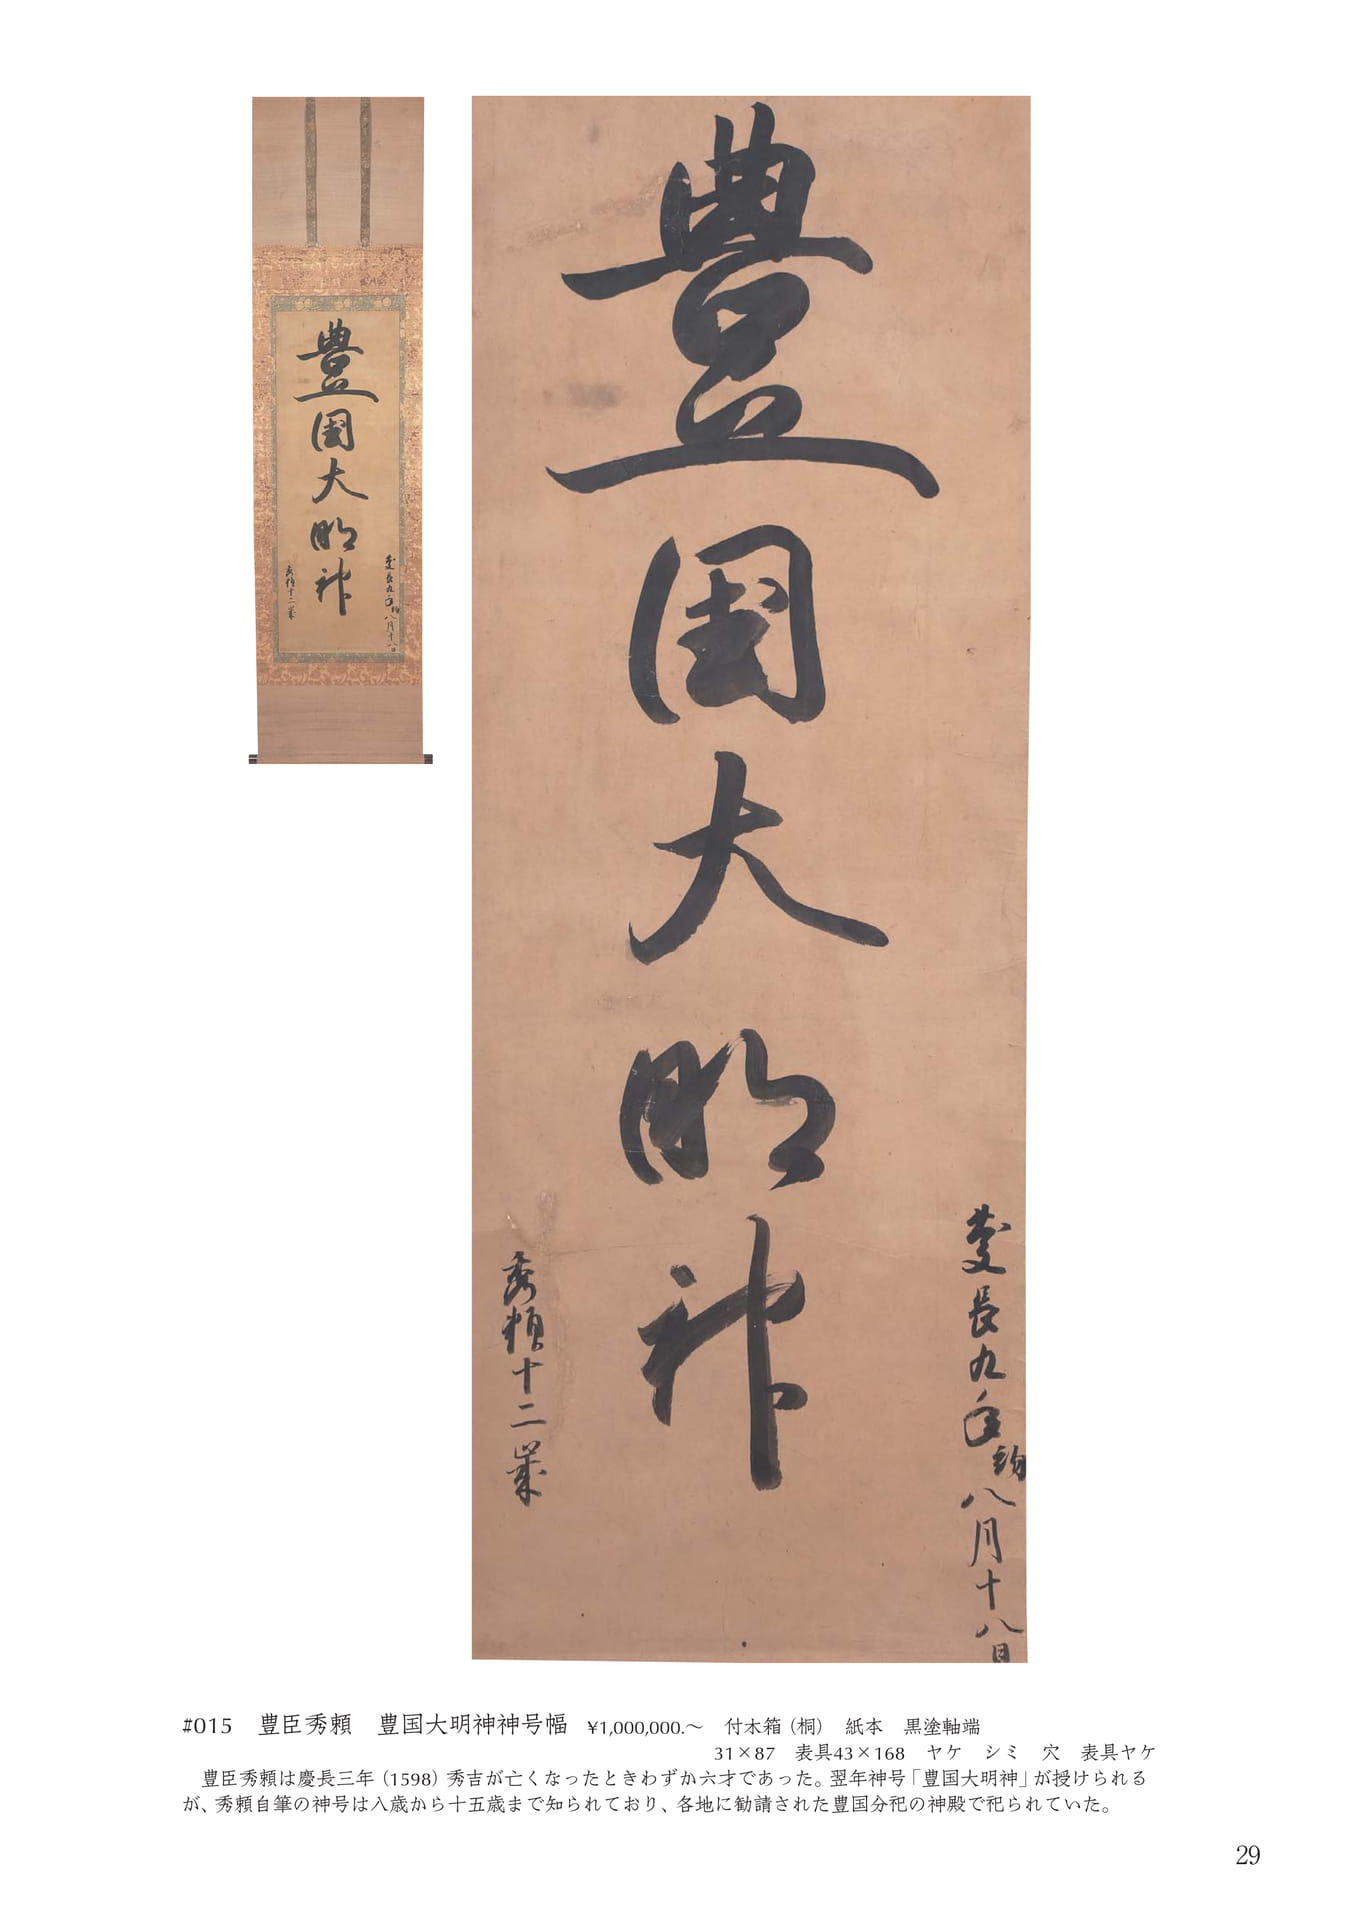 豊国大明神
慶長九年
八月十八日
秀頼十二歳
豊国大明神
慶長九年
八月十八日
秀頼十二歳
#015 豊臣秀頼 豊国大明神神号幅 ¥1,000,000.～ 付木箱（桐） 紙本 黒塗軸端
31×87 表具43×168 ヤケ シミ 穴 表具ヤケ
豊臣秀頼は慶長三年（1598）秀吉が亡くなったときわずか六才であった。翌年神号「豊国大明神」が授けられる
が、秀頼自筆の神号は八歳から十五歳まで知られており、各地に勧請された豊国分祀の神殿で祀られていた。
29